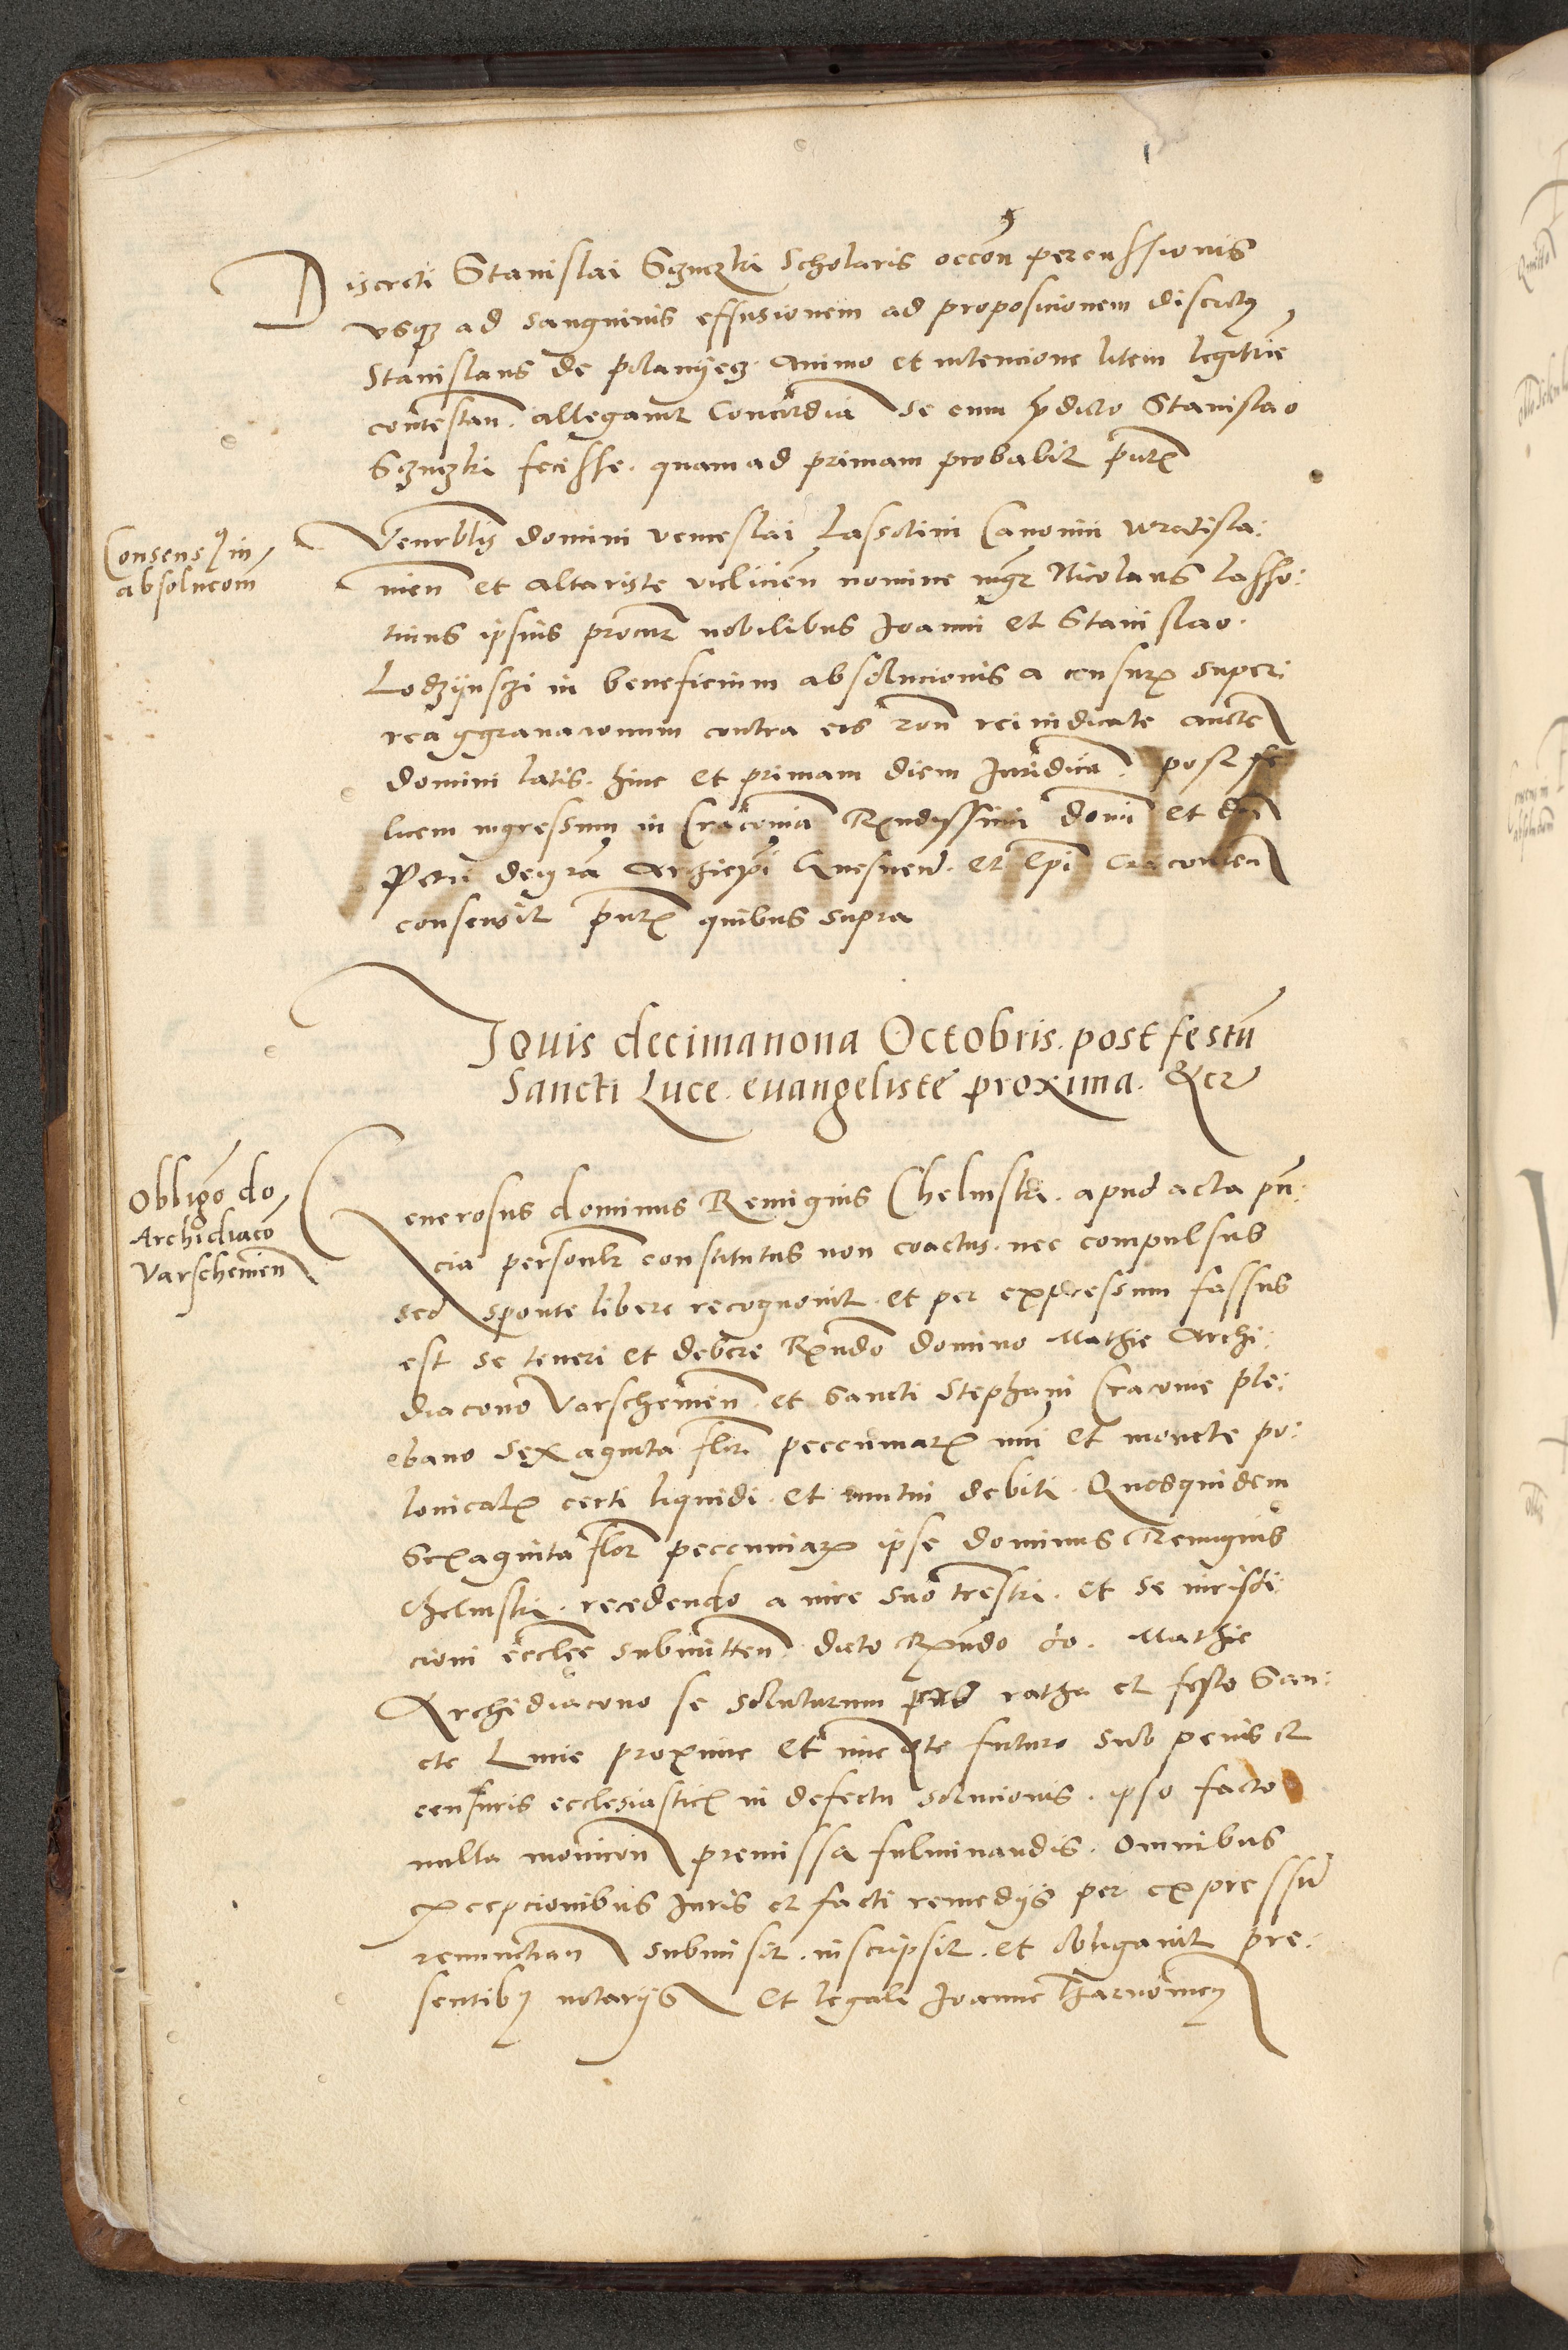 Discreti Stanislai Sczuczki Scholaris occōn percussionis
vsqz ad sanguinis effusionem ad proposicionem discretus
Stanislaus de polanyecz. Animo et intencione litem legittīe
contestan̄. allegauit Concordiā se cum p̄dicto Stanislao
Sczuczki fecisse. quam ad primam probabit pn̄tes
Consensus in
absolucōem
Venerblis domini venceslai Lassotini Canonici wratisla:
uien̄ et Altariste vieliciēn nomine mgr̄ Nicolaus lasso:
tinus ipsius procur̄ nobilibus Joanni et Stanislao.
Lodzijnsczi in beneficium absolucionis a censuris super:
reaggrauacionum contra eos rōn rei iudicate aucte
domini latis. hinc et primam diem Juridicā. post fe
licem ingressum in Cracouiā Rx̄ndissimi domī et dn̄i
Petri dei gr̄a Archiep̄i Gnesneñ. et Ep̄i Cracouien̄
consensit pn̄tes quibus supra
Jouis decimanona Octobris. post festū
Sancti Luce. euangeliste proxima. &cr
Obligō do
Archidiacō
Varscheuien̄
Generosus dominus Remigius Chelmski. apud acta pn̄:
cia personlr̄ constitutus non coactus. nec compulsus
sed sponte libere recognouit. et per expressum fassus
est se teneri et debere Rx̄ndo domino Mathie Archi:
diacono Varscheuien̄. et Sancti Stephani Cracouie ple:
ebano sexaginta flor̄ peccuniarum nūi et monete po:
lonicalis certi liquidi. et mutui debiti. Quosquidem
Sexaginta flor̄ peccuniarum ipse dominus Remigius
Chelmski. recedendo a iure suo trestri. et se iurisdi:
cioni ecclēe submitten̄. dicto Rx̄ndo do. Mathie
Archidiacono se soluturum pro ratha et festo San:
cte Lucie proxime et immediate futuro sub penis et
censuris ecclesiasticis in defectu solucionis. ipso facto
nulla monicōn premissa fulminandis. Omnibus
excepcionibus Juris et facti remedijs per expressū
renuncian̄ submisit. inscripsit. et obligauit pre:
sentibus notarijs et legali Joanne Tharnowiecz